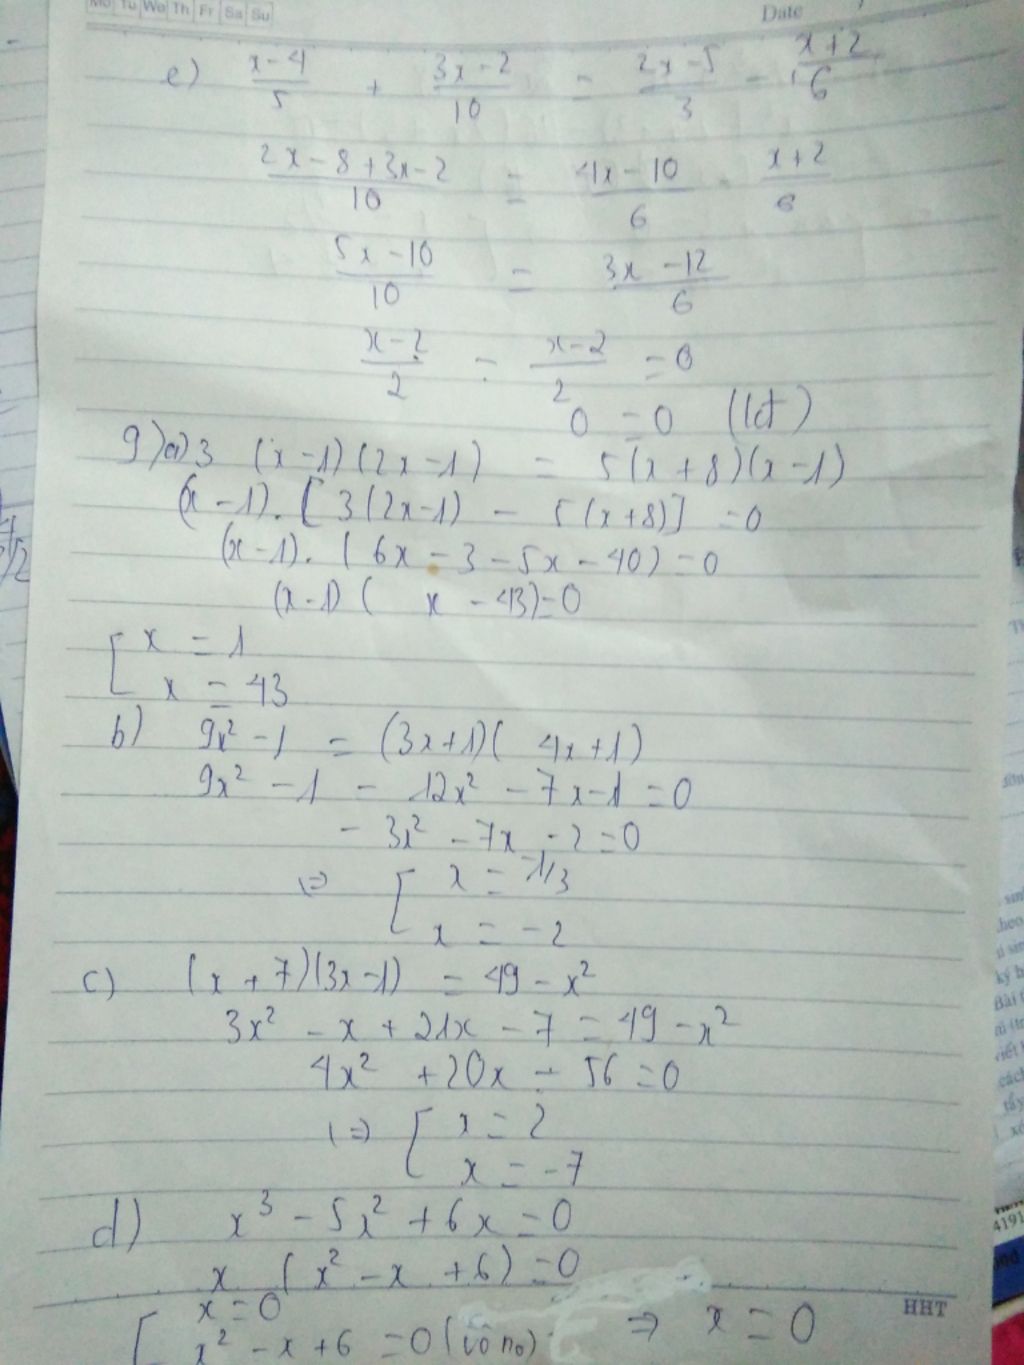 Mo Tu We Th Fr Sa Su Date
e) \frac{x-4}{5} + \frac{3x-2}{10} = \frac{2x-5}{3} - \frac{x+2}{6}
\frac{2x-8+3x-2}{10} = \frac{4x-10}{6} - \frac{x+2}{6}
\frac{5x-10}{10} = \frac{3x-12}{6}
\frac{x-2}{2} = \frac{x-2}{2} = 0
0 = 0 (lđ)
9) a) 3 (x-1)(2x-1) = 5(x+8)(x-1)
(x-1).[3(2x-1) - 5(x+8)] = 0
(x-1).(6x-3-5x-40) = 0
(x-1)( x-43) = 0
[ x = 1
x = 43
b) 9x² - 1 = (3x+1)( 4x+1)
9x² - 1 - 12x² - 7x - 1 = 0
- 3x² - 7x - 2 = 0
=> [ x = -1/3
x = -2
c) (x+7)(3x-1) = 49 - x²
3x² - x + 21x - 7 = 49 - x²
4x² + 20x - 56 = 0
(=) [ x = 2
x = -7
d) x³ - 5x² + 6x = 0
x (x² - x + 6) = 0
[ x = 0
x² - x + 6 = 0 (vô no) => x = 0
HHT